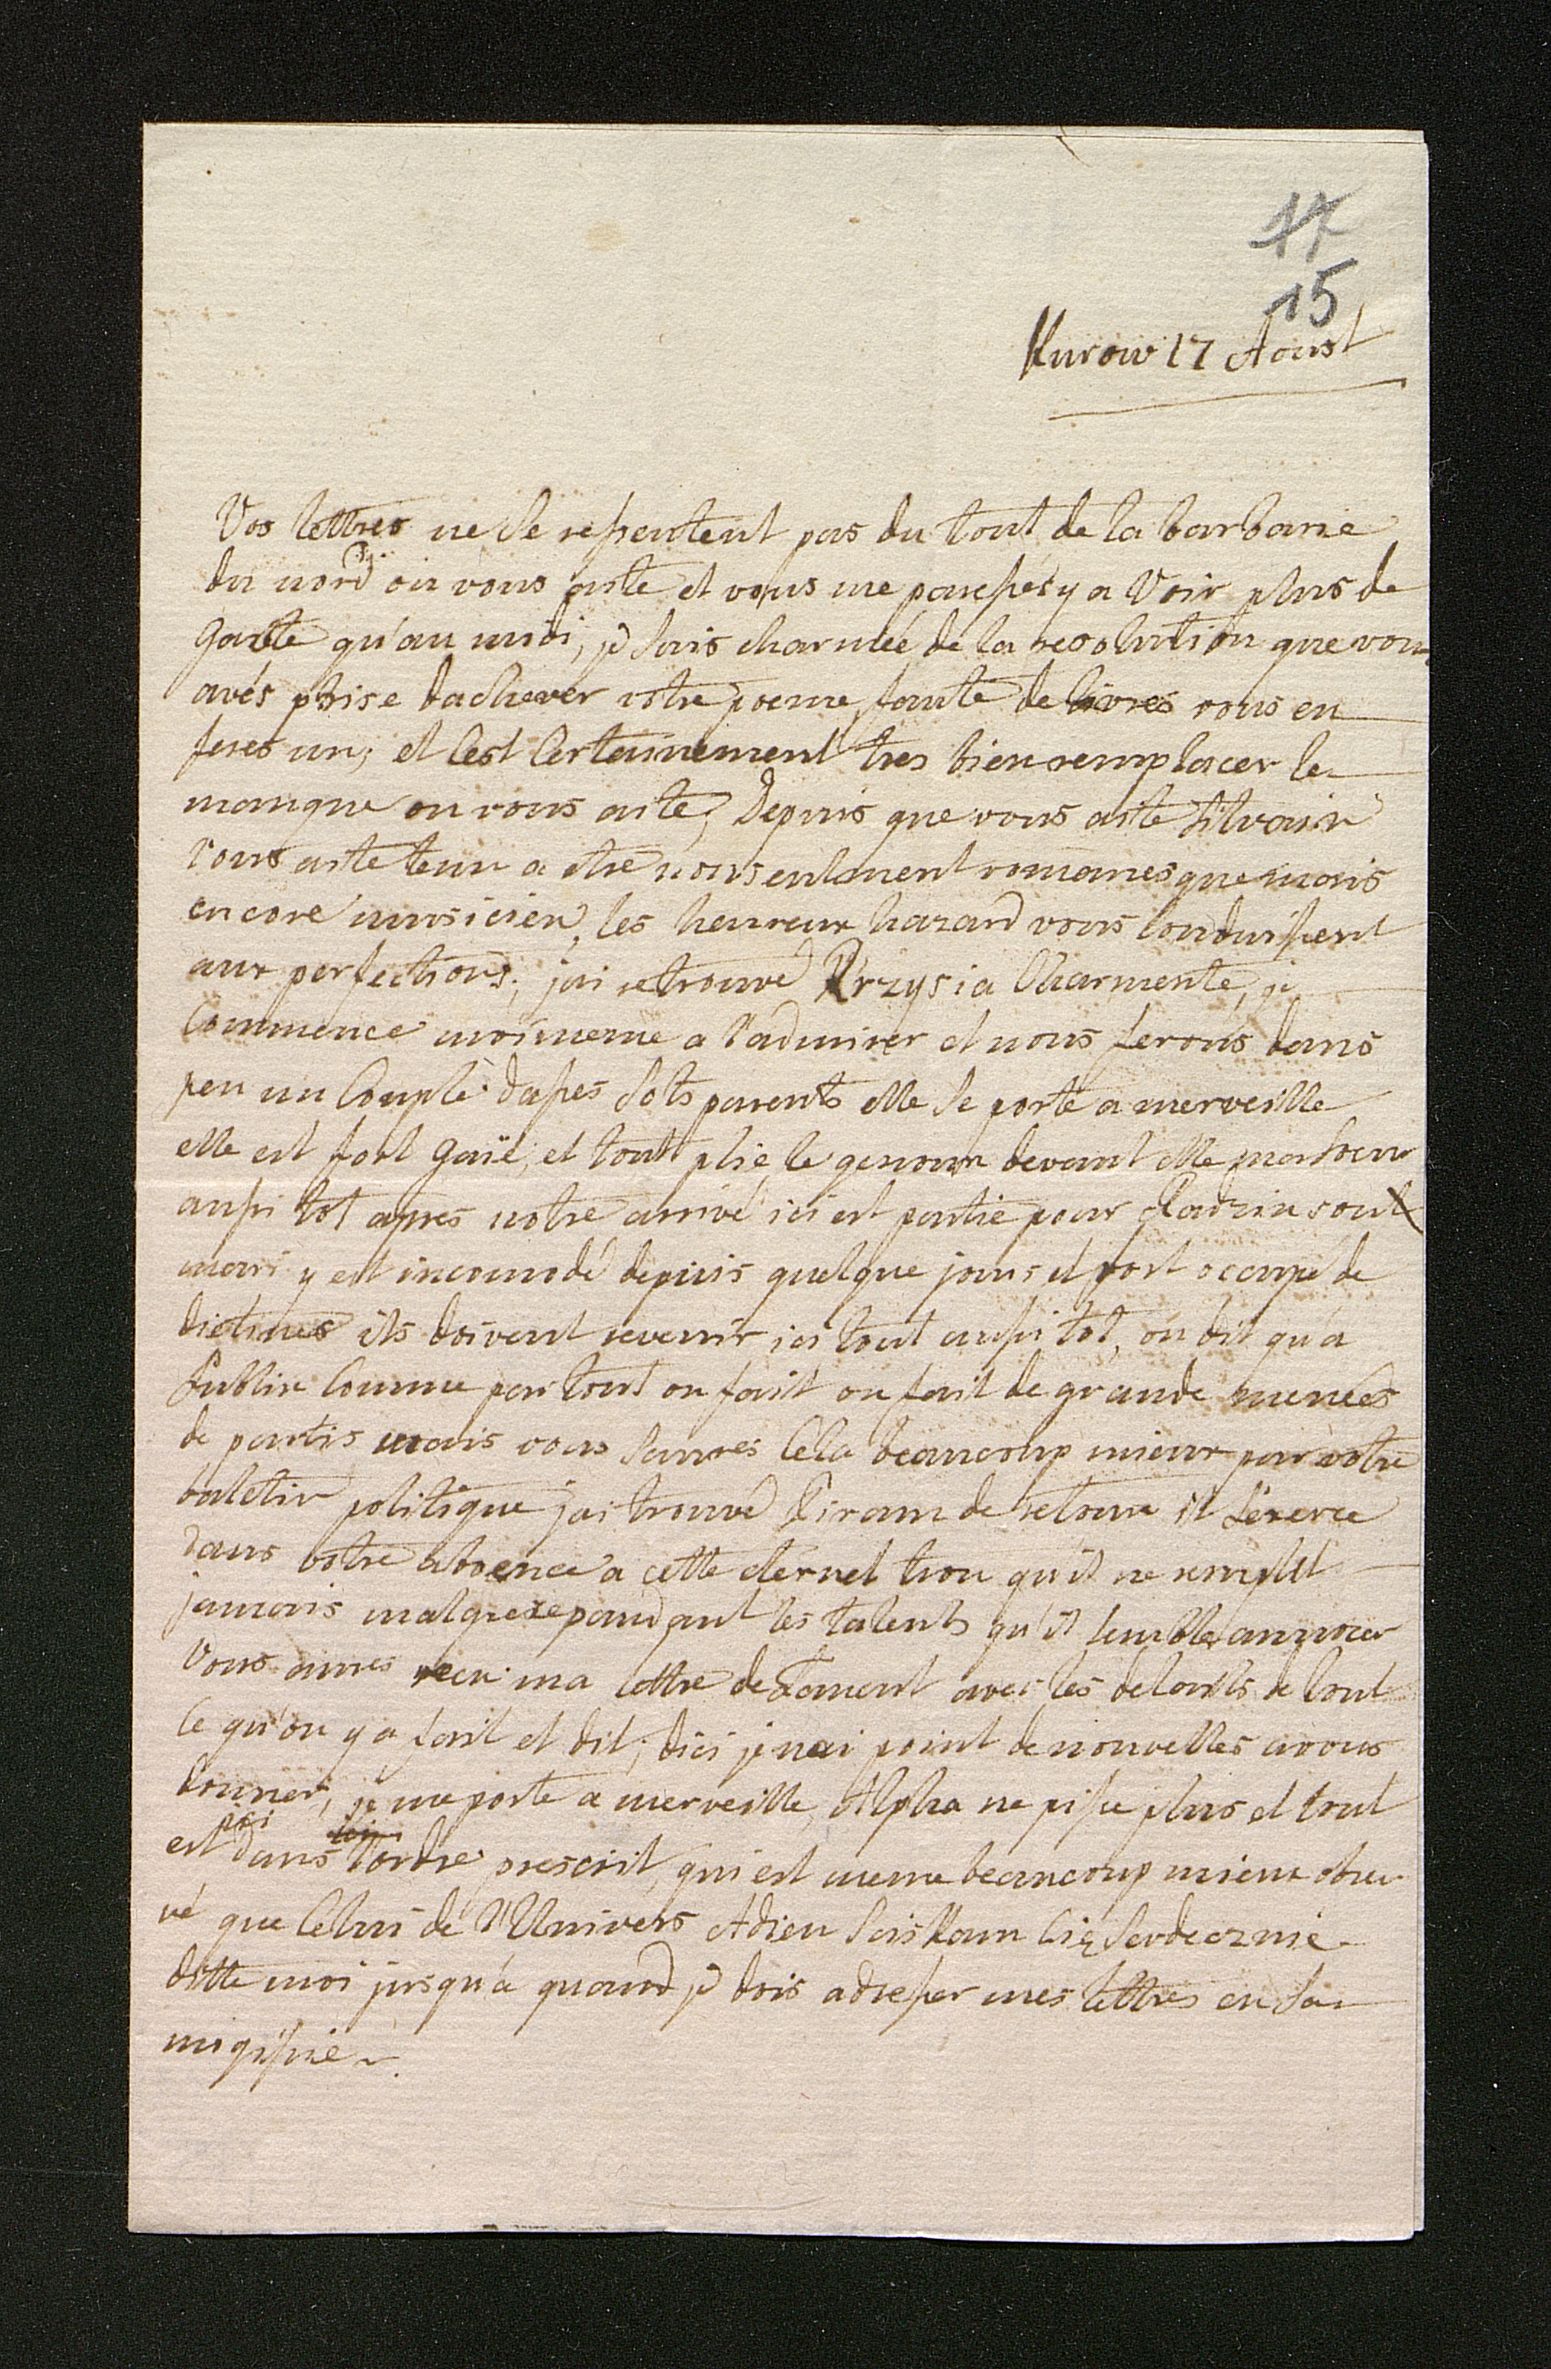 17
15
Kurow 17 Aoust
Vos lettres ne se repentent pas du tout de la barbarie
du nord ou vous aite et vous me paroissés y a Voir plus de
gaite qu'au midi, je suis charmée de la resolution que vous
avés prise dachever votre poeme faute de livres vous en
feres un; et cest certainement tres bien remplacer le
manque ou vous aite, Depuis que vous aite
vous aite tenu a etre nonseulement romanesque mais
encore musicien, les heureux hazard vous conduisent
aux perfections; jai retrouvé Krzysia Charmente, je
commence moimeme a l'admirer et nous ferons dans
peu un couple dasses sots parents elle se porte a merveille
elle est fort gaïe, et tout plie le genoux devant elle masoeur
aussi tot apres notre arrivé ici est partie pour Radzin son
mari y est incomodé depuis quelque jours et fort occupé de
dietines ils doivent revenir ici tout aussi tot, on dit qu'a
Lublin comme par tout on fait on fait de grande menées
de partis mais vous saures cela beaucoup mieux par votre
buletin politique jai trouvé Piram de retour il s'exerce
dans votre absence a cette eternel trou qu'il ne remplit
jamais malgre les talents qu'il semble annoncer
Vous aures recu ma lettre de avec les detaills de tout
ce qu'on y a fait et dit; dici je nai point de nouvelles avous
donner, je me porte a merveille, Alpha ne pisse plus et tout
est ici dans l'ordre prescrit, qui est meme beaucoup mieux obser
vé que celui de l'Univers Adieu sciskam cię serdecznie
ditte moi jusqu'a quand je dois adresser mes lettres en Sa
mogissie